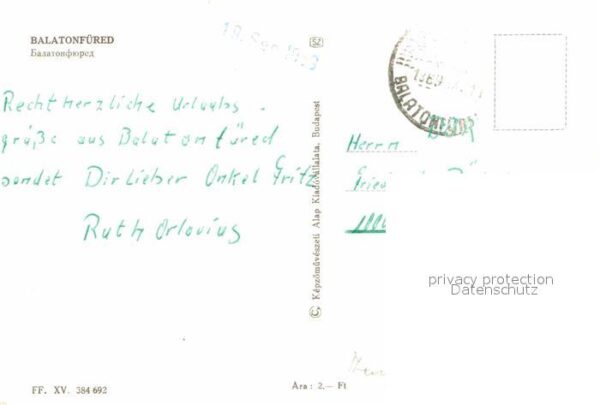 BALATONFÜRED
Балатонфюред
SZ
BALATONFÜRED
Recht herzliche Urlaubs-
grüße aus Balatonfüred
sendet Dir lieber Onkel Fritz
Ruth Orlovius
Herrn
© Képzőművészeti Alap Kiadóvállalata, Budapest
privacy protection
Datenschutz
FF. XV. 384 692
Ára: 2,— Ft